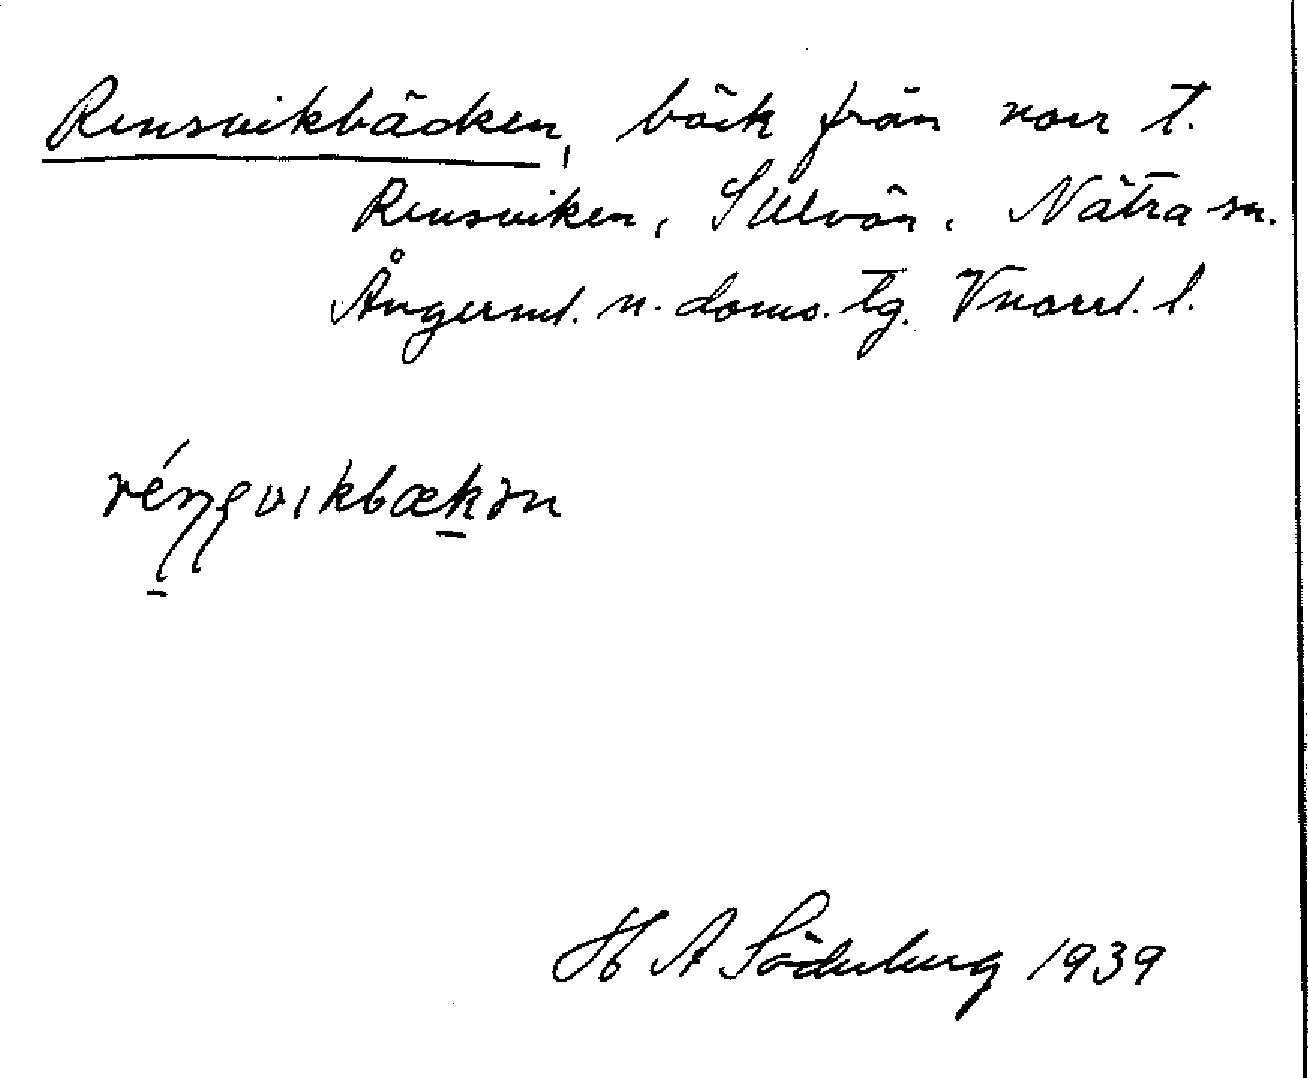 Rensvikbäcken, bäck från norr t.
Rensviken, S Ulvön, Nätra sn.
Ångerml. n. doms. tg. Vnorrl. l.
H A Söderberg 1939